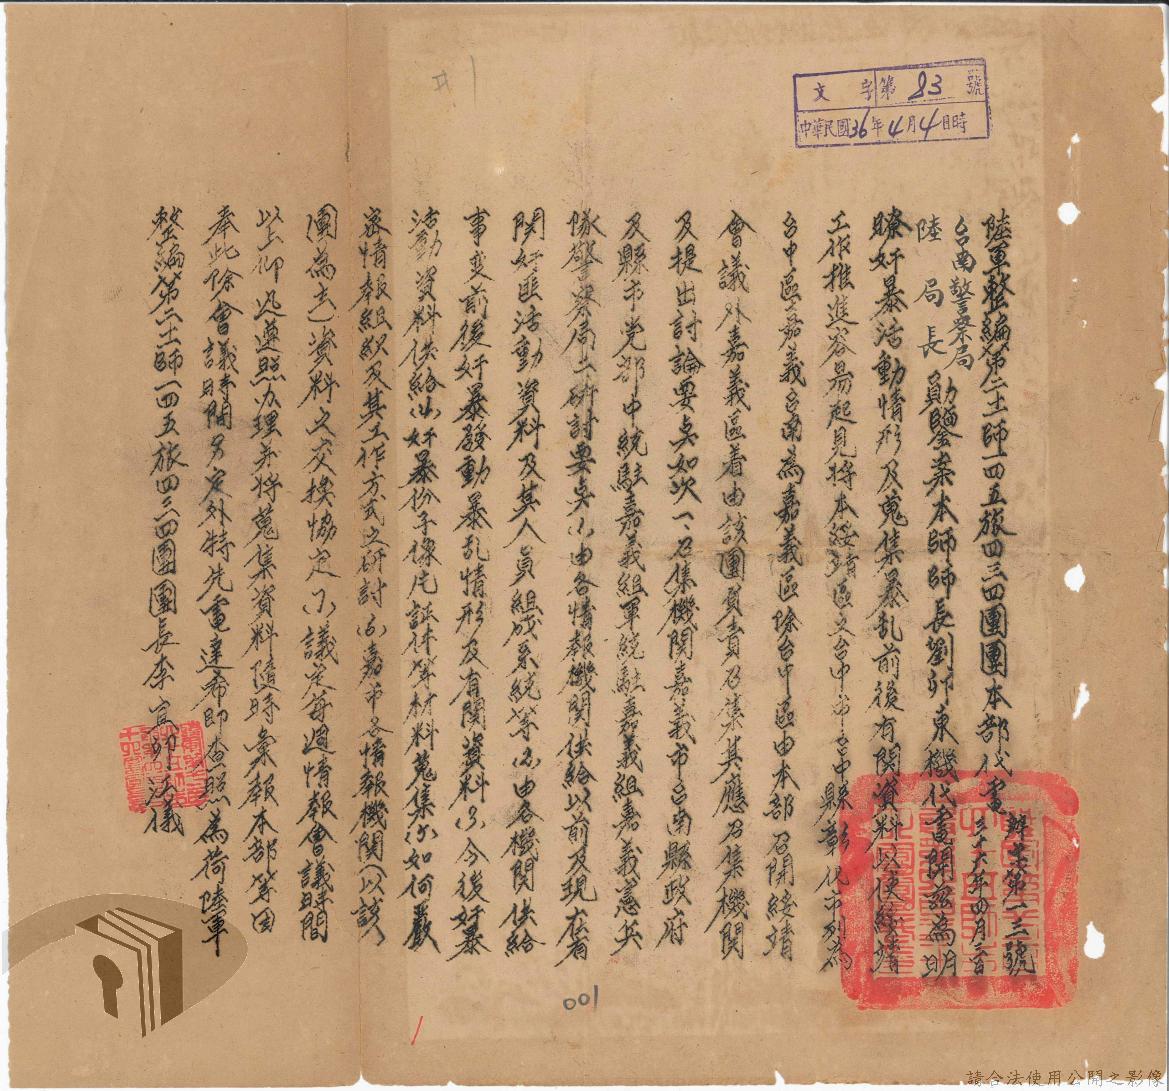 文字第83號
中華民國36年4月4日時
陸軍整編第二十一師一四五旅四三四團團本部代電
三十六年四月三日
台南警察局
陸局長勛鑒案本師師長劉卯東機代電開茲為明
瞭奸暴活動情形及蒐集暴乱前後有関資料以使綏靖
工作推進容易起見將本綏靖區之台中市台中縣彰化市列為
台中區嘉義台南為嘉義區除台中區由本部召開綏靖
會議外嘉義區着由該團負責召集其應召集機関
及提出討論要点如次一、召集機関嘉義市台南縣政府
及縣市党部中統駐嘉義組軍統駐嘉義組嘉義憲兵
隊警察局二、研討要点(1)由各情報機関供給以前及現在有
関奸匪活動資料及其人員組成系統等(2)由各機関供給
事变前後奸暴發動暴乱情形及有関資料(3)今後奸暴
活動資料供給(4)奸暴份子像片証件等材料蒐集(5)如何嚴
密情報組織及其工作方式之研討(6)嘉市各情報機関(以該
團為主)資料之交換恊定(7)議定每週情報會議時間
以上仰迅遵照办理并將蒐集資料隨時彙報本部等因
奉此除會議時間另定外特先電達希即查照為荷陸軍
整編第二十一師一四五旅四三四團團長李
001
請合法使用公開之影像